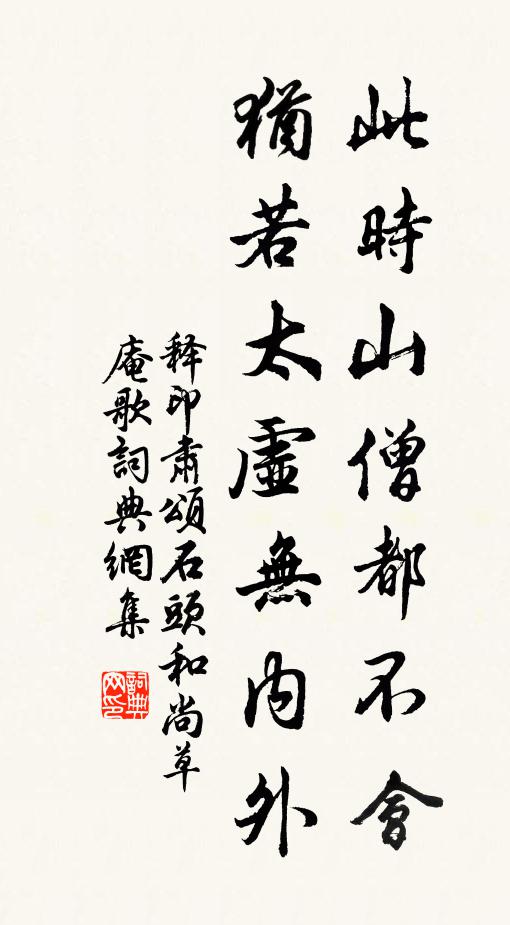 此時山僧都不會
猶若太虛無內外
释印肃頌石頭和尚草
庵歌詞典網集
詞典
网印